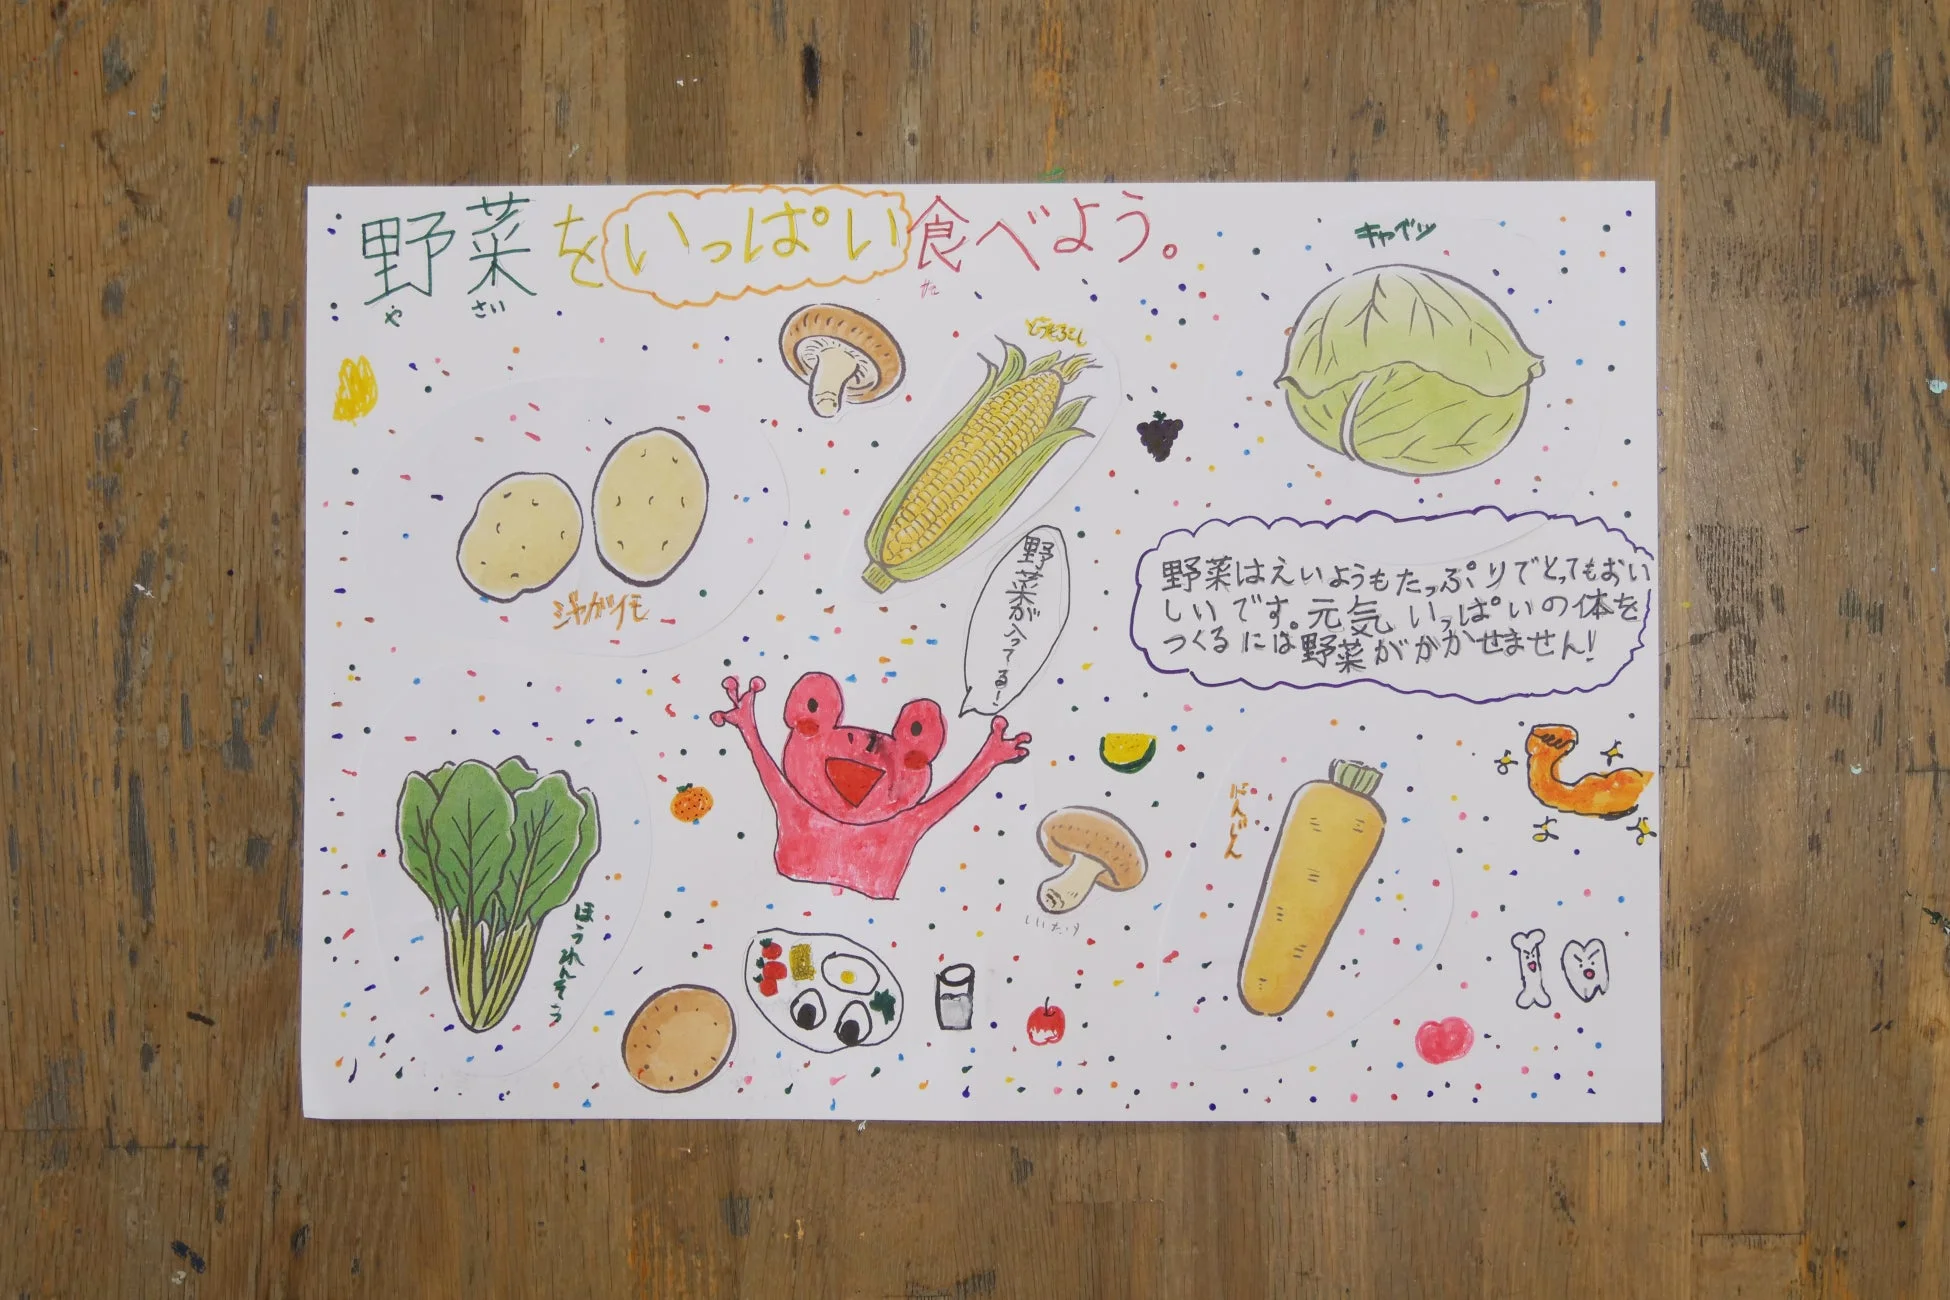 野菜をいっぱい食べよう。
や さい た
キャベツ
とうもろこし
ジャガイモ
野菜が入ってる!
野菜はえいようもたっぷりでとってもおい
しいです。元気いっぱいの体を
つくるには野菜がかかせません!
にんじん
ほうれんそう
しいたけ